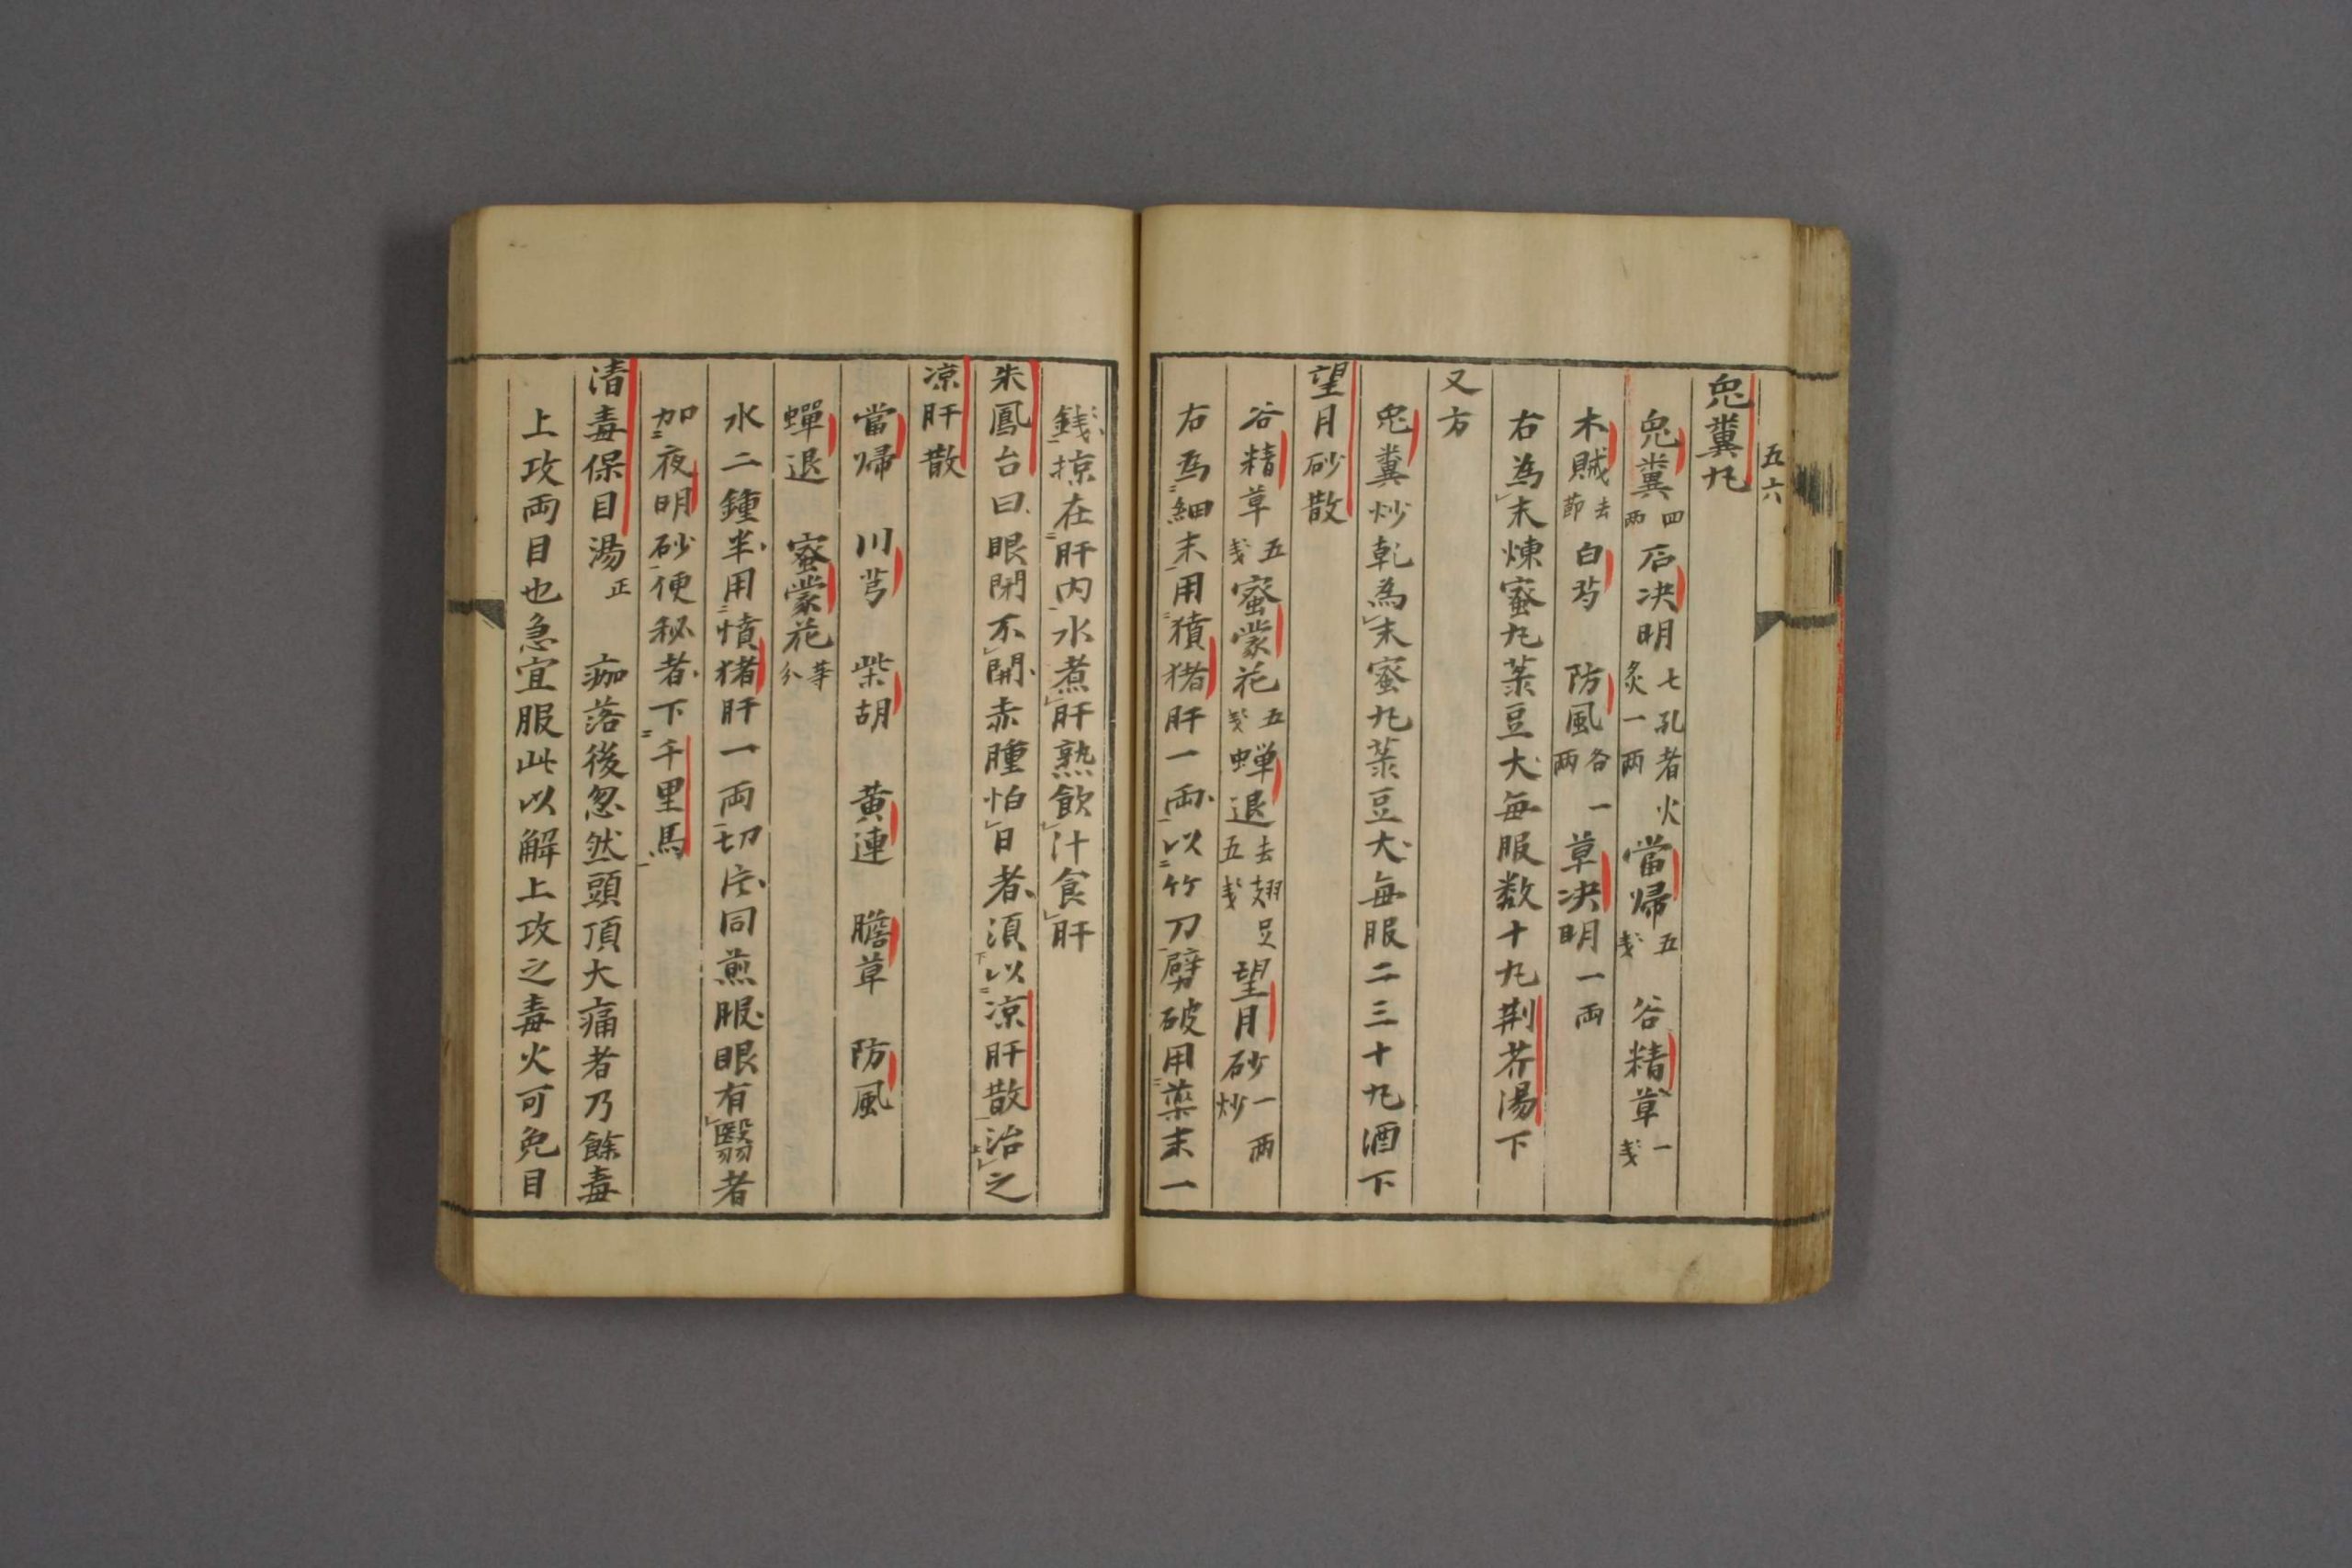 五六
兎糞丸
兎糞四両 石决明七孔者火炙一両 當帰五戔 谷精草一戔
木賊去節 白芍 防風各一両 草决明一両
右為末煉蜜丸菉豆大每服数十丸荆芥湯下
又方
兎糞炒乾為末蜜丸菉豆大每服二三十丸酒下
望月砂散
谷精草五戔 蜜蒙花五戔 蝉退去翅足五戔 望月砂一両炒
右為細末用獖猪肝一両以竹刀劈破用薬末一
銭掠在肝内水煮肝熟飲汁食肝
朱鳳台曰眼閉不開赤腫怕日者須以凉肝散治之
凉肝散
當帰 川芎 柴胡 黄連 膽草 防風
蟬退 蜜蒙花等分
水二鍾半用憤猪肝一両切片同煎服眼有翳者
加夜明砂便秘者下千里馬
清毒保目湯正 痂落後忽然頭頂大痛者乃餘毒
上攻両目也急宜服此以解上攻之毒火可免目